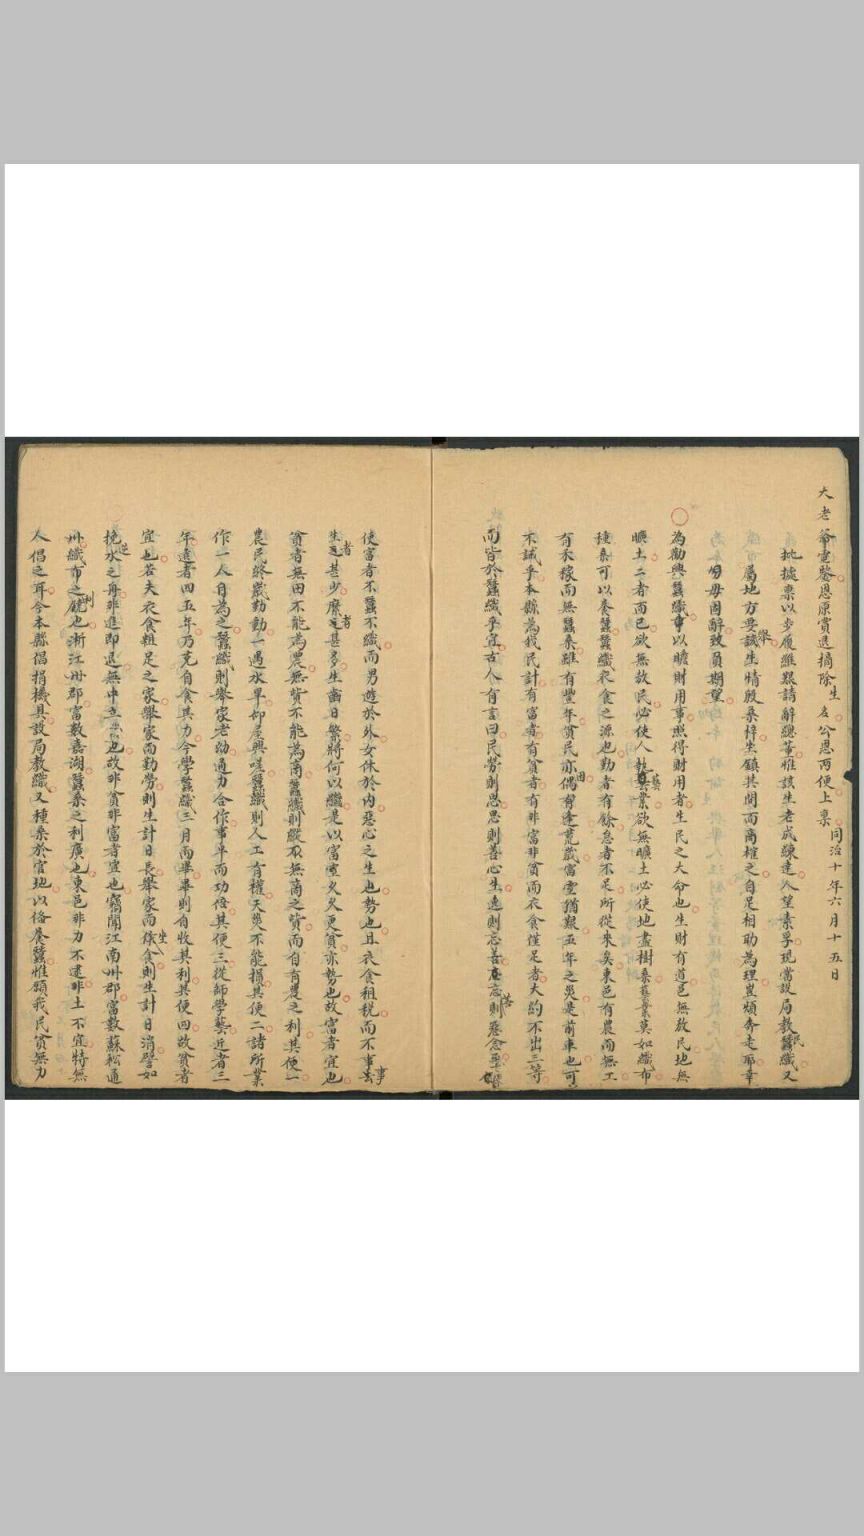 大老爺電鑒恩原賞退摘除生名公恩兩便上稟 同治十年六月十五日
批據稟以步履維艱請辭總董惟該生老成練達人望素孚現當設局教民蠶織又
屬地方要舉誠生情殷桑梓生鎮其間而商榷之自足相助為理豈煩奔走耶幸
勿毋固辭致負期望
為勸興蠶織事以贍財用事照得財用者生民之大命也生財有道邑無敖民地無
曠土二者而已欲無敖民必使人執藝業欲無曠土必使地盡樹桑藝業莫如織布
種桑可以養蠶蠶織衣食之源也勤者有餘怠者不足所從來矣東邑有農而無工
有禾稼而無蠶桑雖有豐年貧民亦困偶逢荒歲富室猶艱五年之災是前車也可
不誡乎本縣為我民計有富者有貧者有非富非貧而衣食僅足者大約不出三等
而皆於蠶織乎宜古人有言曰民勞則思思則善心生逸則忘善忘善則惡心
使富者不蠶不織而男遊於外女休於內惡心之生也勢也且衣食租稅而不事事
生者甚少糜者甚多生齒日繁將何以繼是以富室久久更貧亦勢也故富者宜也
貧者無田不能為農無貲不能為商蠶織則縱不無商之貲而自有農之利其便一
農民終歲勤動一遇水旱仰屋興嗟蠶織則人工有權天災不能損其便二諸所業
作一人自為之蠶織則舉家老幼通力合作事半而功倍其便三從師學藝近者三
年遠者四五年乃克自食其力今學蠶織三月而畢畢則自收其利其便四故貧者
宜也若夫衣食粗足之家舉家而勤勞則生計日長舉家而坐食則生計日消譬如
挽逆水之舟非進即退無中立也故非貧非富者宜也竊聞江南州郡富數蘇松通
州織布之利也浙江州郡富數嘉湖蠶桑之利廣也東邑非力不逮非土不宜特無
人倡之耳今本縣倡捐機具設局教織又種桑於官地以俻養蠶惟願我民貧無力